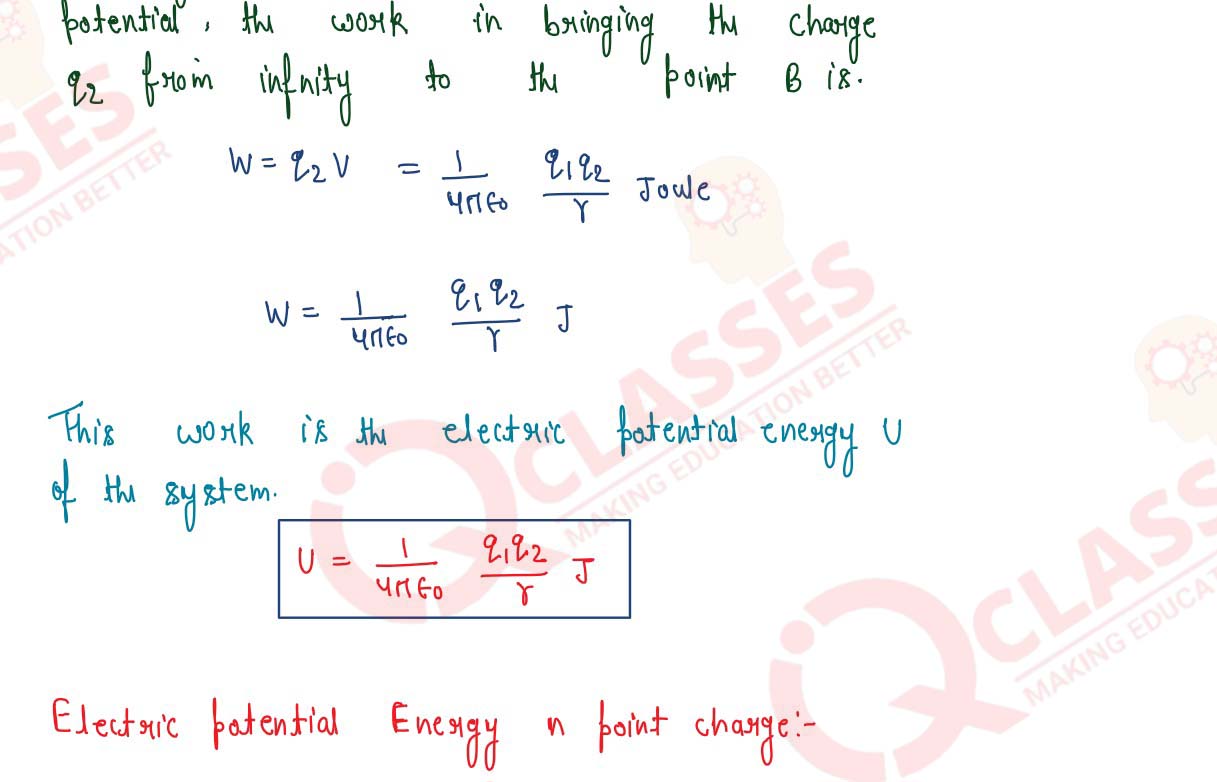 potential, the work in bringing the charge
q2 from infnity to the point B is.
W = q2 V = 1/4πϵ0 q1q2/r Joule
W = 1/4πϵ0 q1q2/r J
This work is the electric potential energy U
of the system.
U = 1/4πϵ0 q1q2/r J
Electric potential Energy n point charge:-
SES
ATION BETTER
iQ CLASSES
MAKING EDUCATION BETTER
iQ CLASSES
MAKING EDUCAT